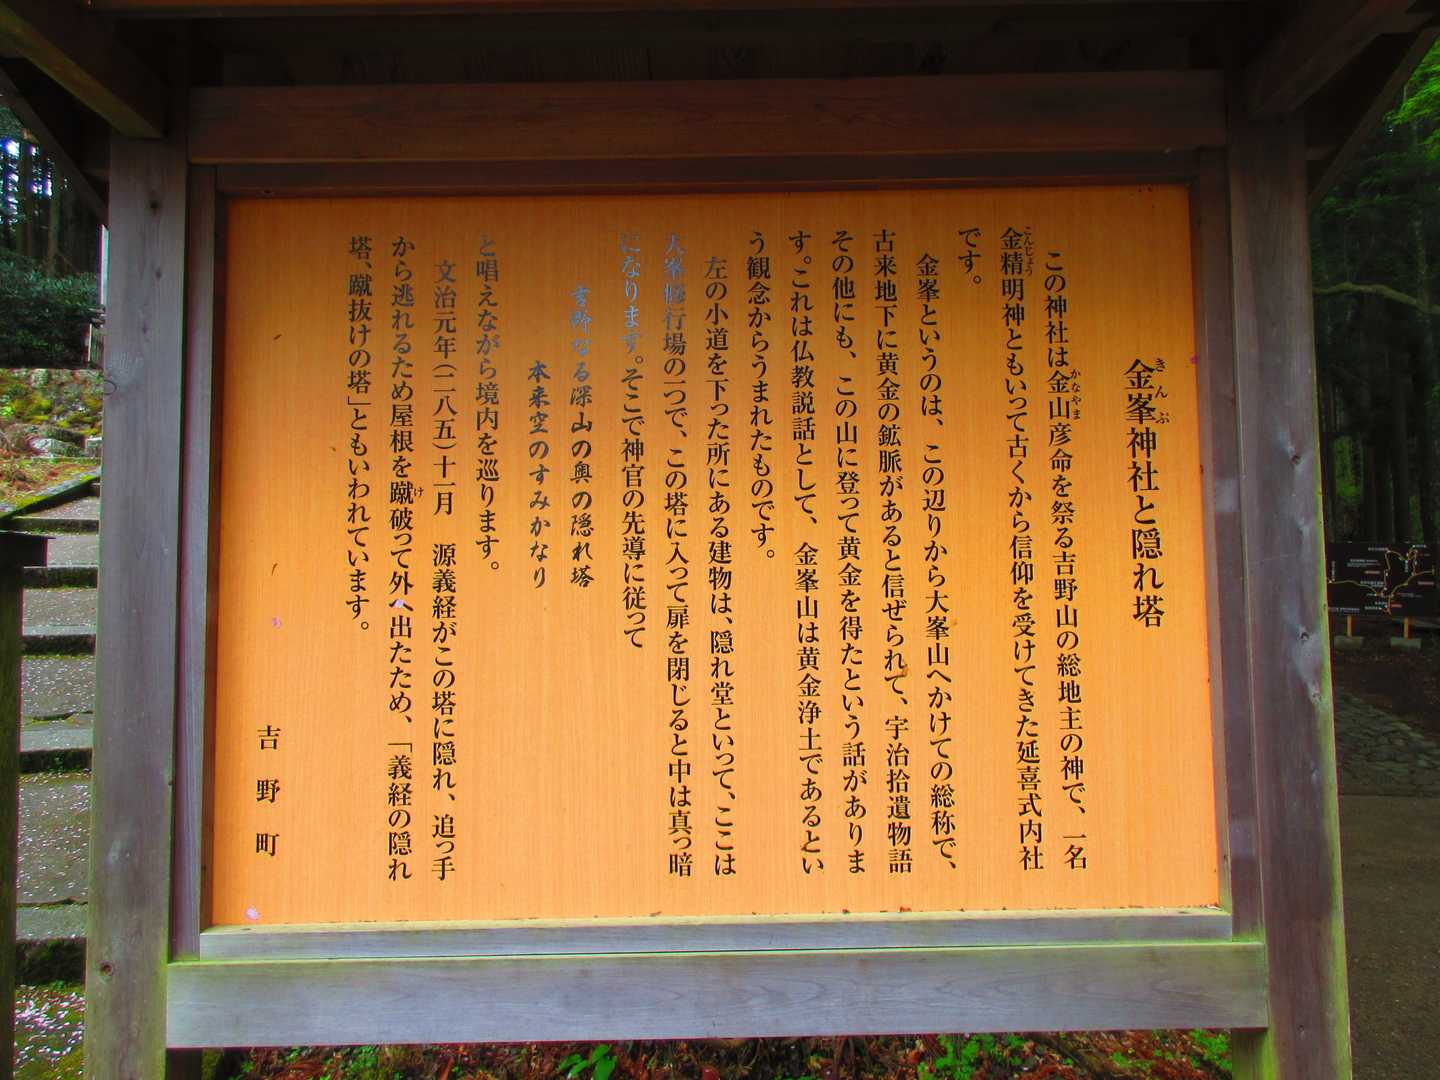 金峯神社と隠れ塔
きんぶ
この神社は金山彦命を祭る吉野山の総地主の神で、一名
かなやま
金精明神ともいって古くから信仰を受けてきた延喜式内社
こんじょう
です。
金峯というのは、この辺りから大峯山へかけての総称で、
古来地下に黄金の鉱脈があると信ぜられて、宇治拾遺物語
その他にも、この山に登って黄金を得たという話がありま
す。これは仏教説話として、金峯山は黄金浄土であるとい
う観念からうまれたものです。
左の小道を下った所にある建物は、隠れ堂といって、ここは
大峯修行場の一つで、この塔に入って扉を閉じると中は真っ暗
になります。そこで神官の先導に従って
吉野なる深山の奥の隠れ塔
本来空のすみかなり
と唱えながら境内を巡ります。
文治元年(一一八五)十一月 源義経がこの塔に隠れ、追っ手
から逃れるため屋根を蹴破って外へ出たため、「義経の隠れ
け
塔、蹴抜けの塔」ともいわれています。
吉野町